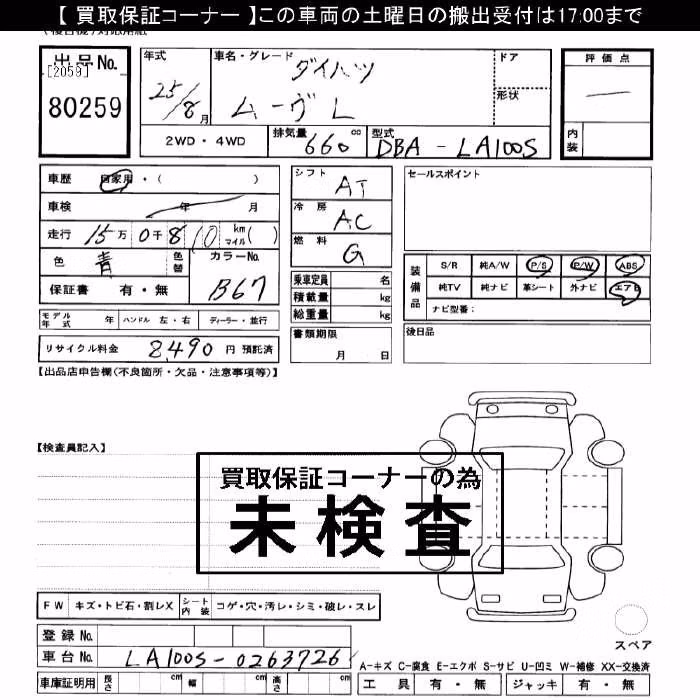 【 買取保証コーナー 】この車両の土曜日の搬出受付は17:00まで
出品No.
[2059]
80259
年式
25/8月
車名・グレード
ダイハツ
ムーヴ L
ドア
形状
評価点
内装
2WD・4WD
排気量 660 cc
型式 DBA - LA100S
車歴 自家用・( )
車検 年 月
走行 15万0千810 km マイル( )
色 青 色替
カラーNo. B67
保証書 有・無
シフト AT
冷房 AC
燃料 G
セールスポイント
装備品
S/R 純A/W P/S P/W ABS
純TV 純ナビ 革シート 外ナビ エアB
ナビ型番：
モデル年式 年 ハンドル 左・右 ディーラー・並行
乗車定員 名
積載量 kg
総重量 kg
リサイクル料金 8,490 円 預託済
書類期限 月 日
後日品
【出品店申告欄(不良箇所・欠品・注意事項等)】
【検査員記入】
買取保証コーナーの為
未検査
FW キズ・トビ石・割レX シート内装 コゲ・穴・汚レ・シミ・破レ・スレ
スペア
登録No.
車台No. LA100S-0263726
A-キズ C-腐食 E-エクボ S-サビ U-凹ミ W-補修 XX-交換済
車庫証明用 長さ cm 幅 cm 高さ cm
工具 有・無 ジャッキ 有・無